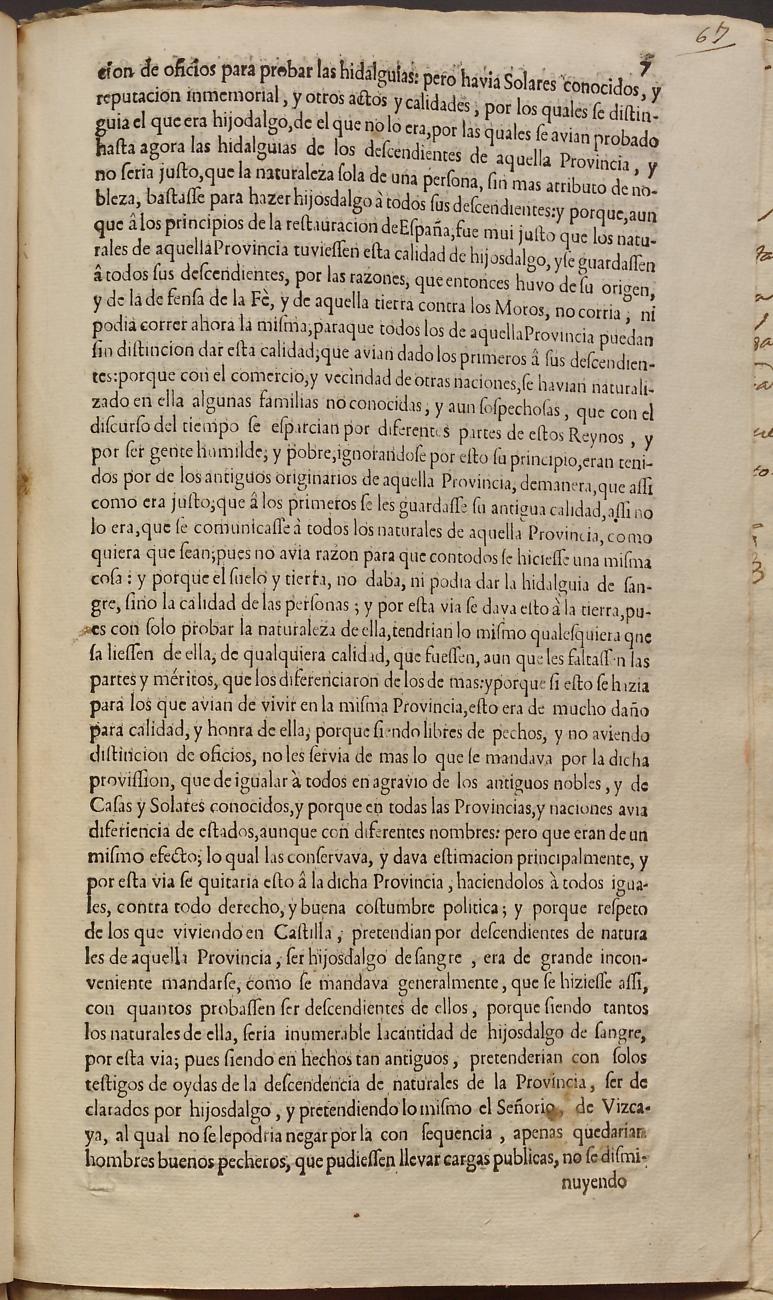 67
7
cion de oficios para probar las hidalguias: pero havia Solares conocidos, y
reputacion inmemorial, y otros actos y calidades, por los quales ſe diſtin-
guia el que era hijodalgo, de el que no lo era, por las quales ſe avian probado
haſta agora las hidalguias de los deſcendientes de aquella Provincia, y
no ſeria juſto, que la naturaleza ſola de una perſona, ſin mas atributo de no-
bleza, baſtaſſe para hazer hijosdalgo à todos ſus deſcendientes: y porque, aun
que â los principios de la reſtauracion de Eſpaña, fue mui juſto que los natu-
rales de aquella Provincia tuvieſſen eſta calidad de hijosdalgo, y ſe guardaſſen
â todos ſus deſcendientes, por las razones, que entonces huvo de ſu origen,
y de la de fenſa de la Fè, y de aquella tierra contra los Moros, no corria, ni
podia correr ahora la miſma, paraque todos los de aquella Provincia puedan
ſin diſtincion dar eſta calidad; que avian dado los primeros â ſus deſcendien-
tes: porque con el comercio, y vecindad de otras naciones, ſe havian naturali-
zado en ella algunas familias no conocidas, y aun ſoſpechoſas, que con el
diſcurſo del tiempo ſe eſparcian por diferentes partes de eſtos Reynos, y
por ſer gente humilde; y pobre, ignorandoſe por eſto ſu principio, eran teni-
dos por de los antiguos originarios de aquella Provincia, demanera, que aſſi
como era juſto; que â los primeros ſe les guardaſſe ſu antigua calidad, aſſi no
lo era, que ſe comunicaſſe à todos los naturales de aquella Provincia, como
quiera que ſean; pues no avia razon para que contodos ſe hicieſſe una miſma
coſa: y porque el ſuelo y tierra, no daba, ni podia dar la hidalguia de ſan-
gre, ſino la calidad de las perſonas; y por eſta via ſe dava eſto à la tierra, pu-
es con ſolo probar la naturaleza de ella, tendrian lo miſmo qualeſquiera qne
ſa lieſſen de ella, de qualquiera calidad, que fueſſen, aun que les faltaſſen las
partes y méritos, que los diferenciaron de los de mas: y porque ſi eſto ſe hazia
para los que avian de vivir en la miſma Provincia, eſto era de mucho daño
para calidad, y honra de ella, porque ſiendo libres de pechos, y no aviendo
diſtincion de oficios, no les ſervia de mas lo que ſe mandava por la dicha
proviſſion, que de igualar à todos en agravio de los antiguos nobles, y de
Caſas y Solares conocidos, y porque en todas las Provincias, y naciones avia
diferiencia de eſtados, aunque con diferentes nombres: pero que eran de un
miſmo efecto; lo qual las conſervava, y dava eſtimacion principalmente, y
por eſta via ſe quitaria eſto â la dicha Provincia, haciendolos à todos igua-
les, contra todo derecho, y buena coſtumbre politica; y porque reſpeto
de los que viviendo en Caſtilla, pretendian por deſcendientes de natura
les de aquella Provincia, ſer hijosdalgo de ſangre, era de grande incon-
veniente mandarſe, como ſe mandava generalmente, que ſe hizieſſe aſſi,
con quantos probaſſen ſer deſcendientes de ellos, porque ſiendo tantos
los naturales de ella, ſeria inumerable la cantidad de hijosdalgo de ſangre,
por eſta via; pues ſiendo en hechos tan antiguos, pretenderian con ſolos
teſtigos de oydas de la deſcendencia de naturales de la Provincia, ſer de
clarados por hijosdalgo, y pretendiendo lo miſmo el Señorio, de Vizca-
ya, al qual no ſe le podria negar por la con ſequencia, apenas quedarian
hombres buenos pecheros, que pudieſſen llevar cargas publicas, no ſe diſmi-
nuyendo